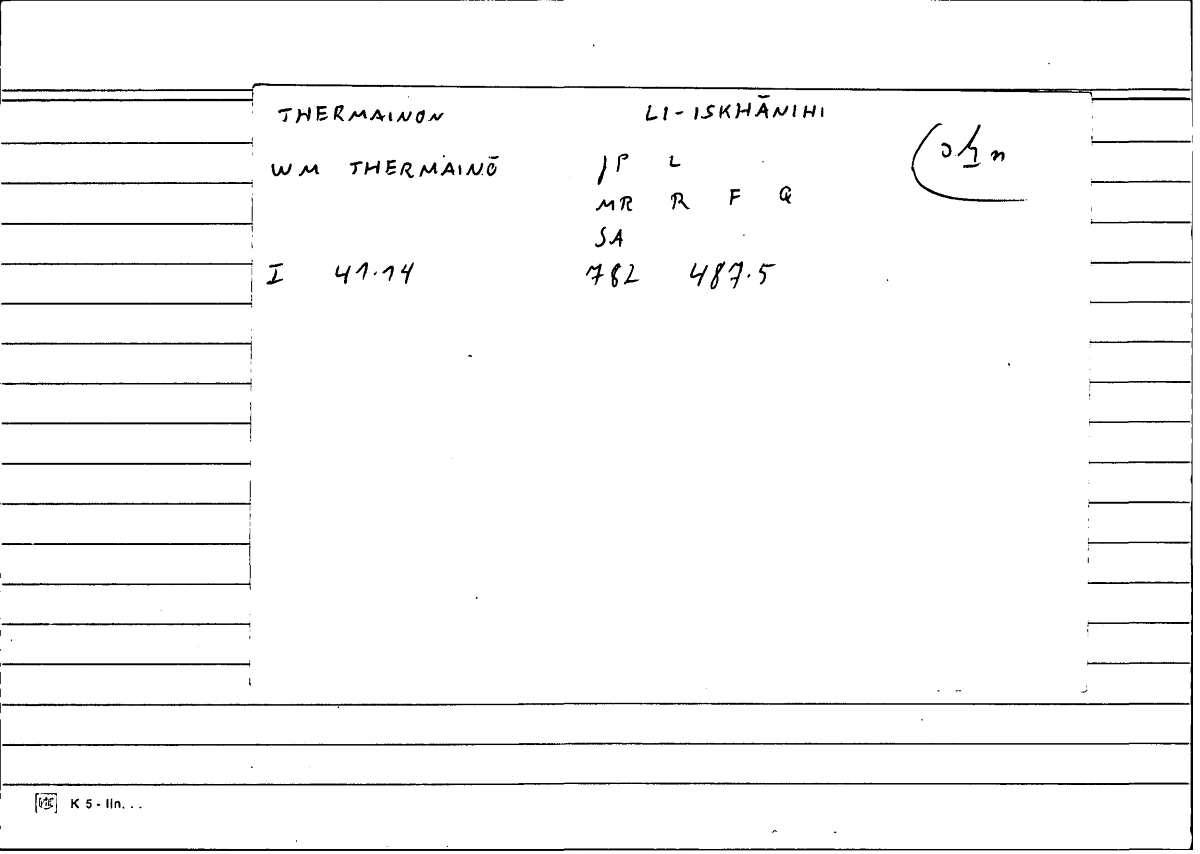 THERMAINON LI-ISKHĀNIHI
WM THERMAINŌ JP L
MR R F Q
SA
I 41.14 782 487.5
K 5 - lin. . .